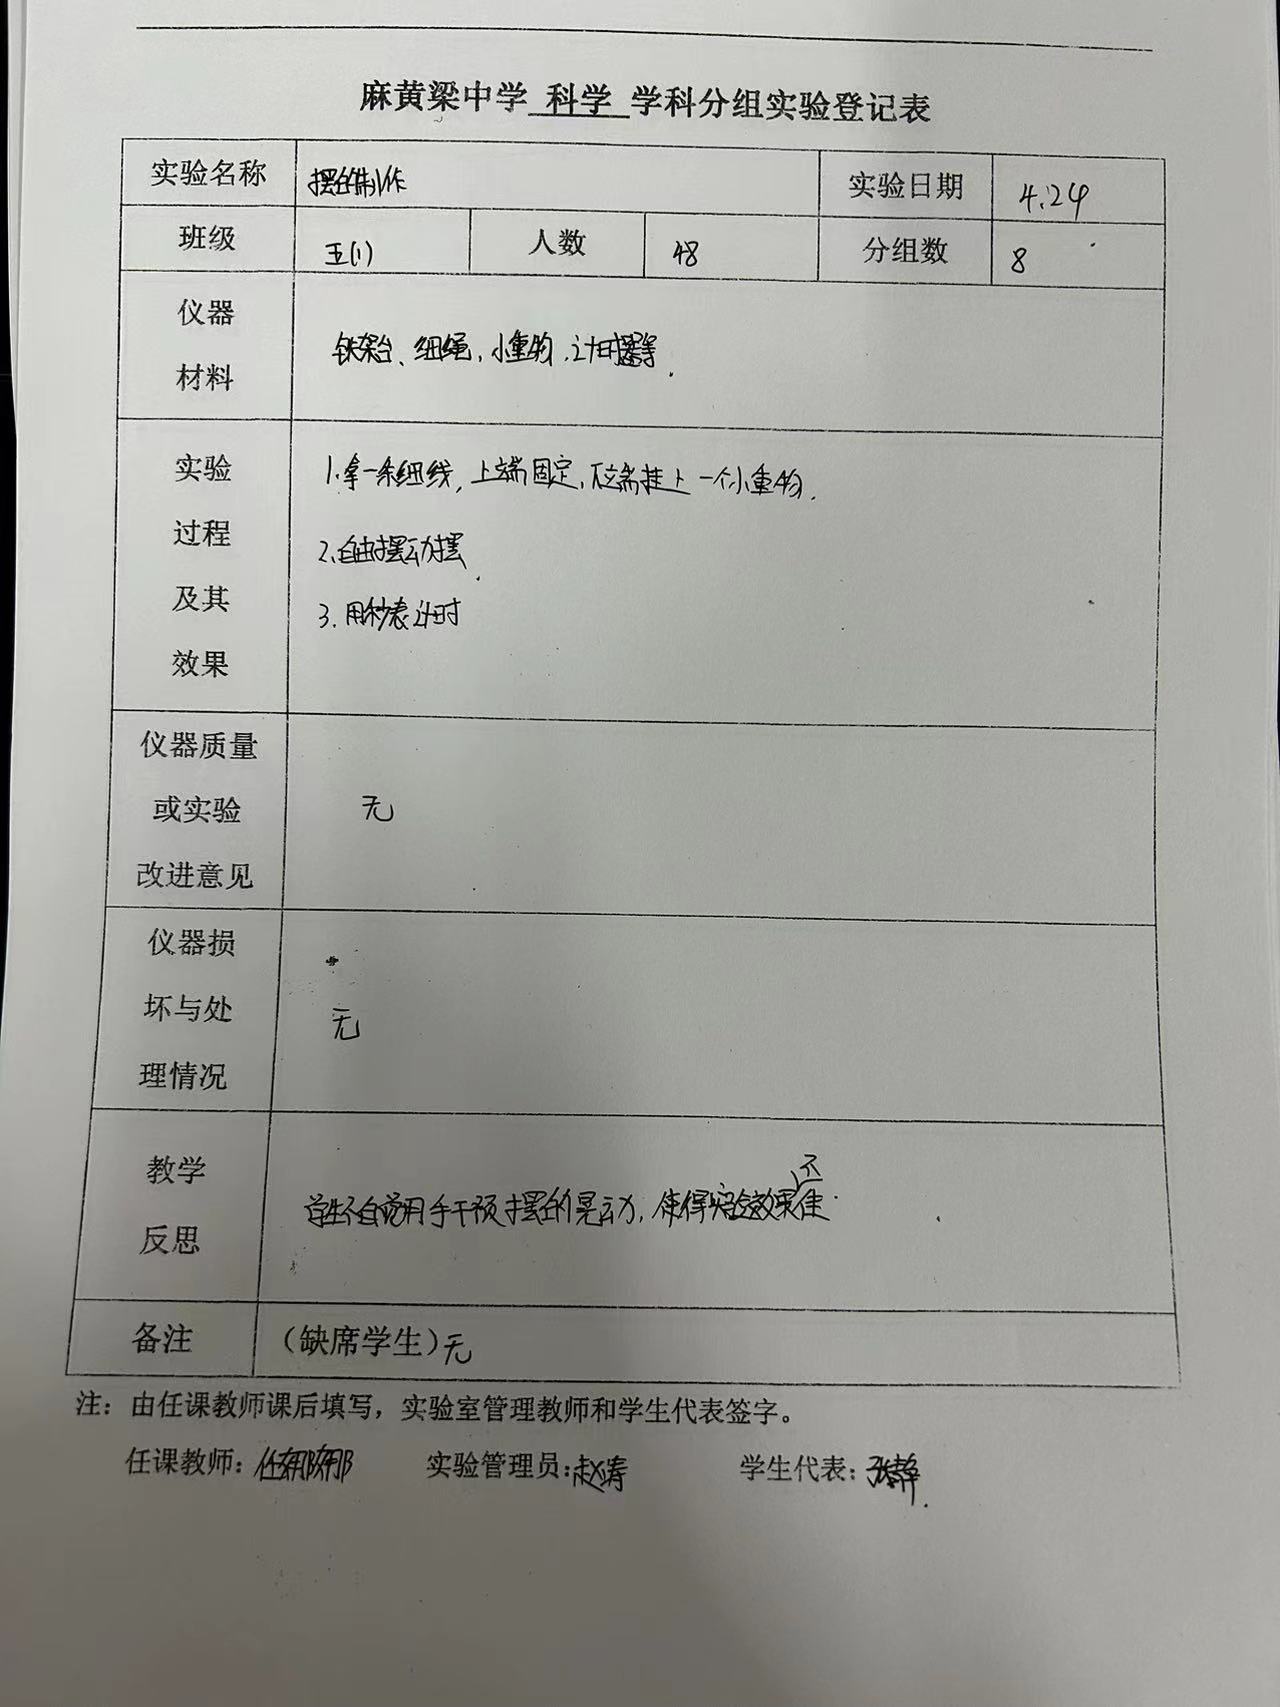 麻黄梁中学 科学 学科分组实验登记表
实验名称 摆的制作 实验日期 4.24
班级 五(1) 人数 48 分组数 8
仪器
材料
铁架台、细绳,小重物,计时器等.
实验
过程
及其
效果
1.拿一条细线,上端固定,下端挂上一个小重物.
2.自由摆动摆
3.用秒表计时
仪器质量
或实验
改进意见
无
仪器损
坏与处
理情况
无
教学
反思
学生不自觉用手干预摆的晃动,使得实验效果不佳.
备注 (缺席学生)无
注:由任课教师课后填写,实验室管理教师和学生代表签字。
任课教师:任娜娜 实验管理员:赵涛 学生代表:张静